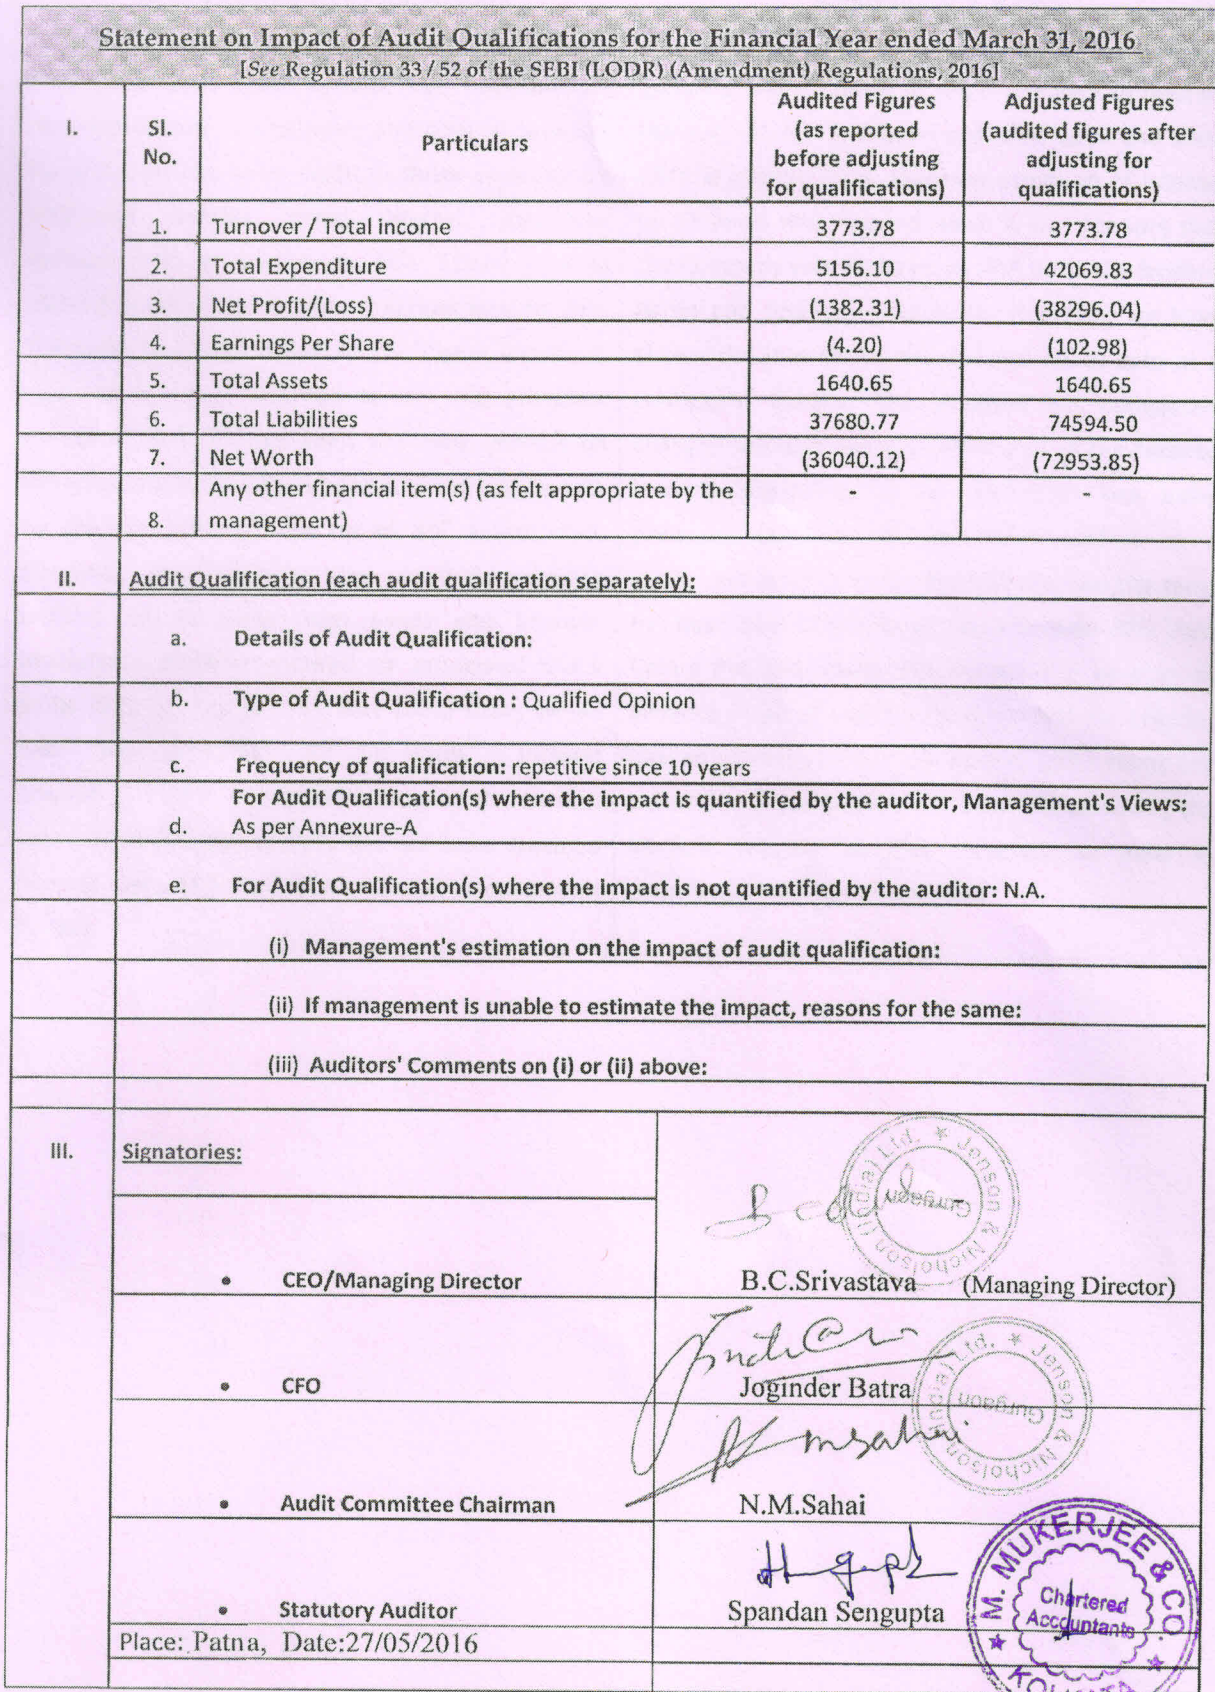 Statement on Impact of Audit Qualifications for the Financial Year ended March 31, 2016
[See Regulation 33 / 52 of the SEBI (LODR) (Amendment) Regulations, 2016]
I. Sl. No. Particulars Audited Figures (as reported before adjusting for qualifications) Adjusted Figures (audited figures after adjusting for qualifications)
1. Turnover / Total income 3773.78 3773.78
2. Total Expenditure 5156.10 42069.83
3. Net Profit/(Loss) (1382.31) (38296.04)
4. Earnings Per Share (4.20) (102.98)
5. Total Assets 1640.65 1640.65
6. Total Liabilities 37680.77 74594.50
7. Net Worth (36040.12) (72953.85)
8. Any other financial item(s) (as felt appropriate by the management) - -
II. Audit Qualification (each audit qualification separately):
a. Details of Audit Qualification:
b. Type of Audit Qualification : Qualified Opinion
c. Frequency of qualification: repetitive since 10 years
d. For Audit Qualification(s) where the impact is quantified by the auditor, Management's Views:
As per Annexure-A
e. For Audit Qualification(s) where the impact is not quantified by the auditor: N.A.
(i) Management's estimation on the impact of audit qualification:
(ii) If management is unable to estimate the impact, reasons for the same:
(iii) Auditors' Comments on (i) or (ii) above:
III. Signatories:
Jenson & Nicholson (India) Ltd. ★
Gurgaon
• CEO/Managing Director B.C.Srivastava (Managing Director)
Jenson & Nicholson (India) Ltd. ★
Gurgaon
• CFO Joginder Batra
nmsahai
• Audit Committee Chairman N.M.Sahai
M. MUKERJEE & CO.
Chartered
Accountants
• Statutory Auditor Spandan Sengupta
Place: Patna, Date:27/05/2016